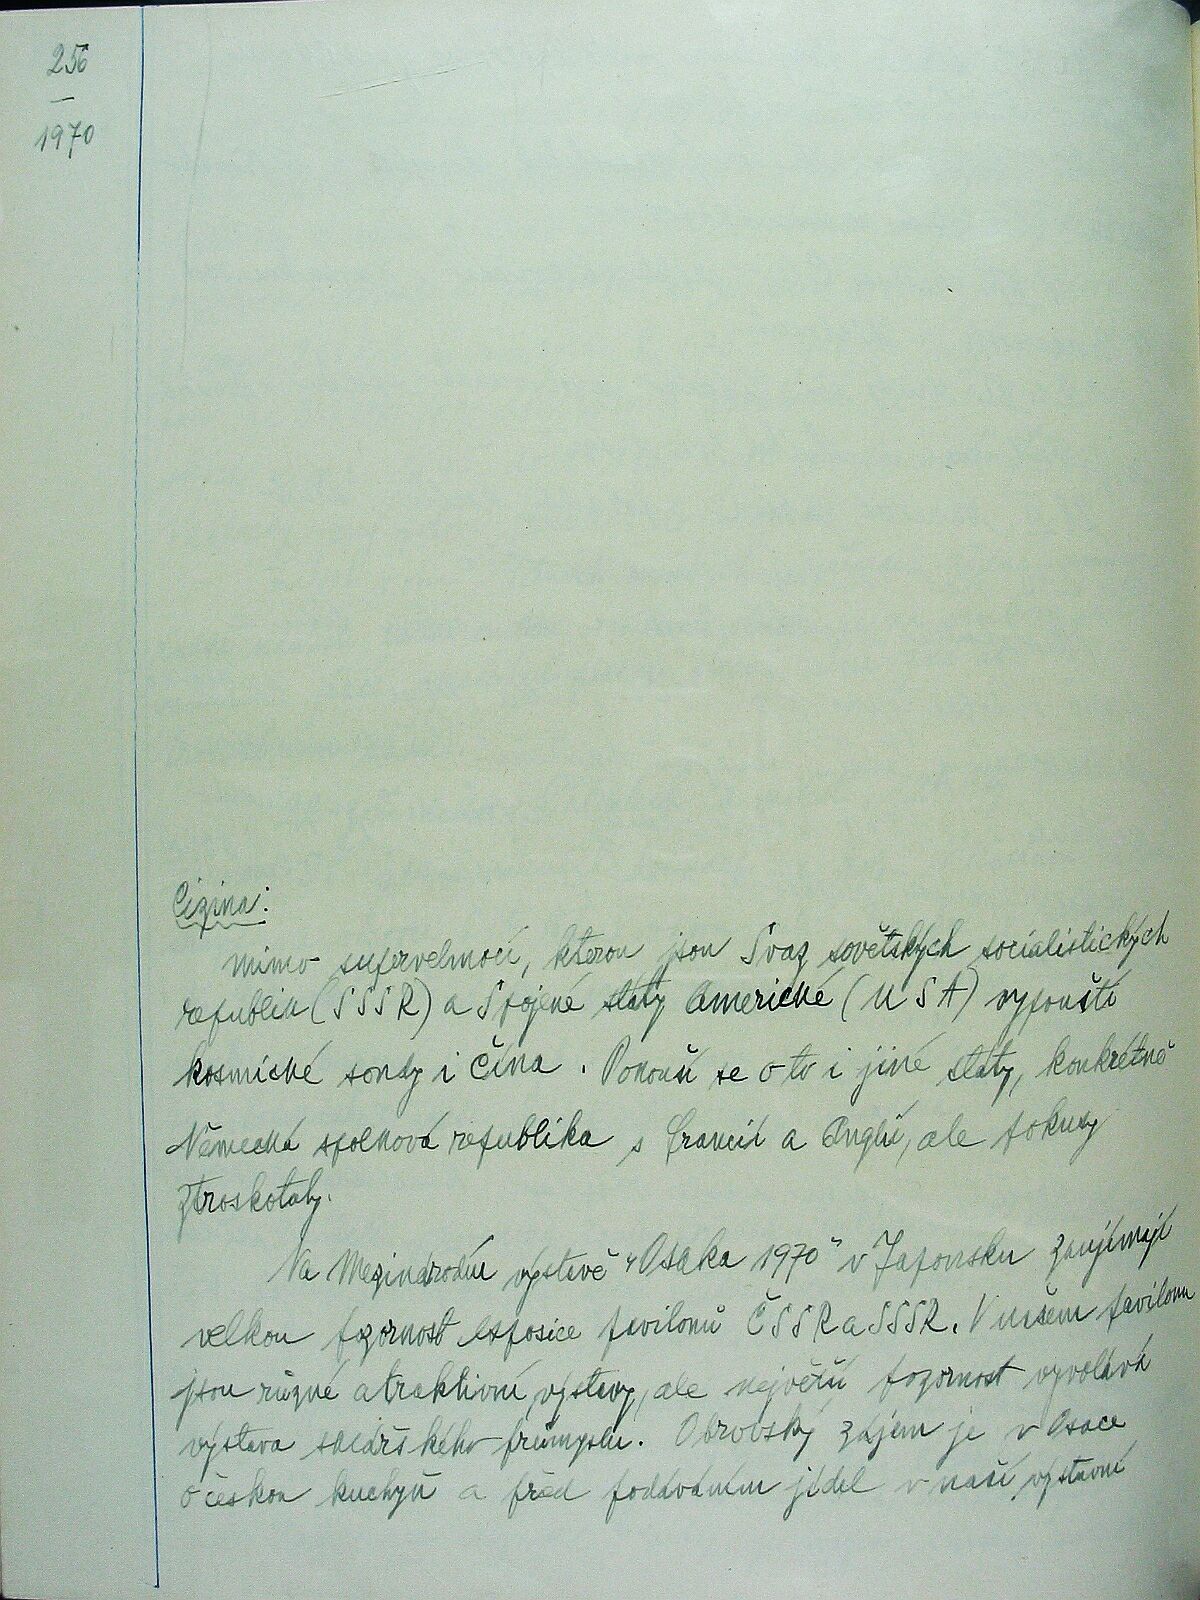 256
—
1970
Cizina:
mimo supervelmocí, kterou jsou Svaz sovětských socialistických
republik (SSSR) a Spojené státy Americké (USA) vypouští
kosmické sondy i Čína. Pokouší se o to i jiné státy, konkrétně
Německá spolková republika s Francií a Anglií, ale pokusy
ztroskotaly.
Na Mezinárodní výstavě "Osaka 1970" v Japonsku zaujímají
velkou pozornost exposice pavilonů ČSSR a SSSR. V našem pavilonu
jsou různé atraktivní výstavy, ale největší pozornost vyvolává
výstava sklářského průmyslu. Obrovský zájem je v Osace
o českou kuchyň a před podáváním jídel v naší výstavní